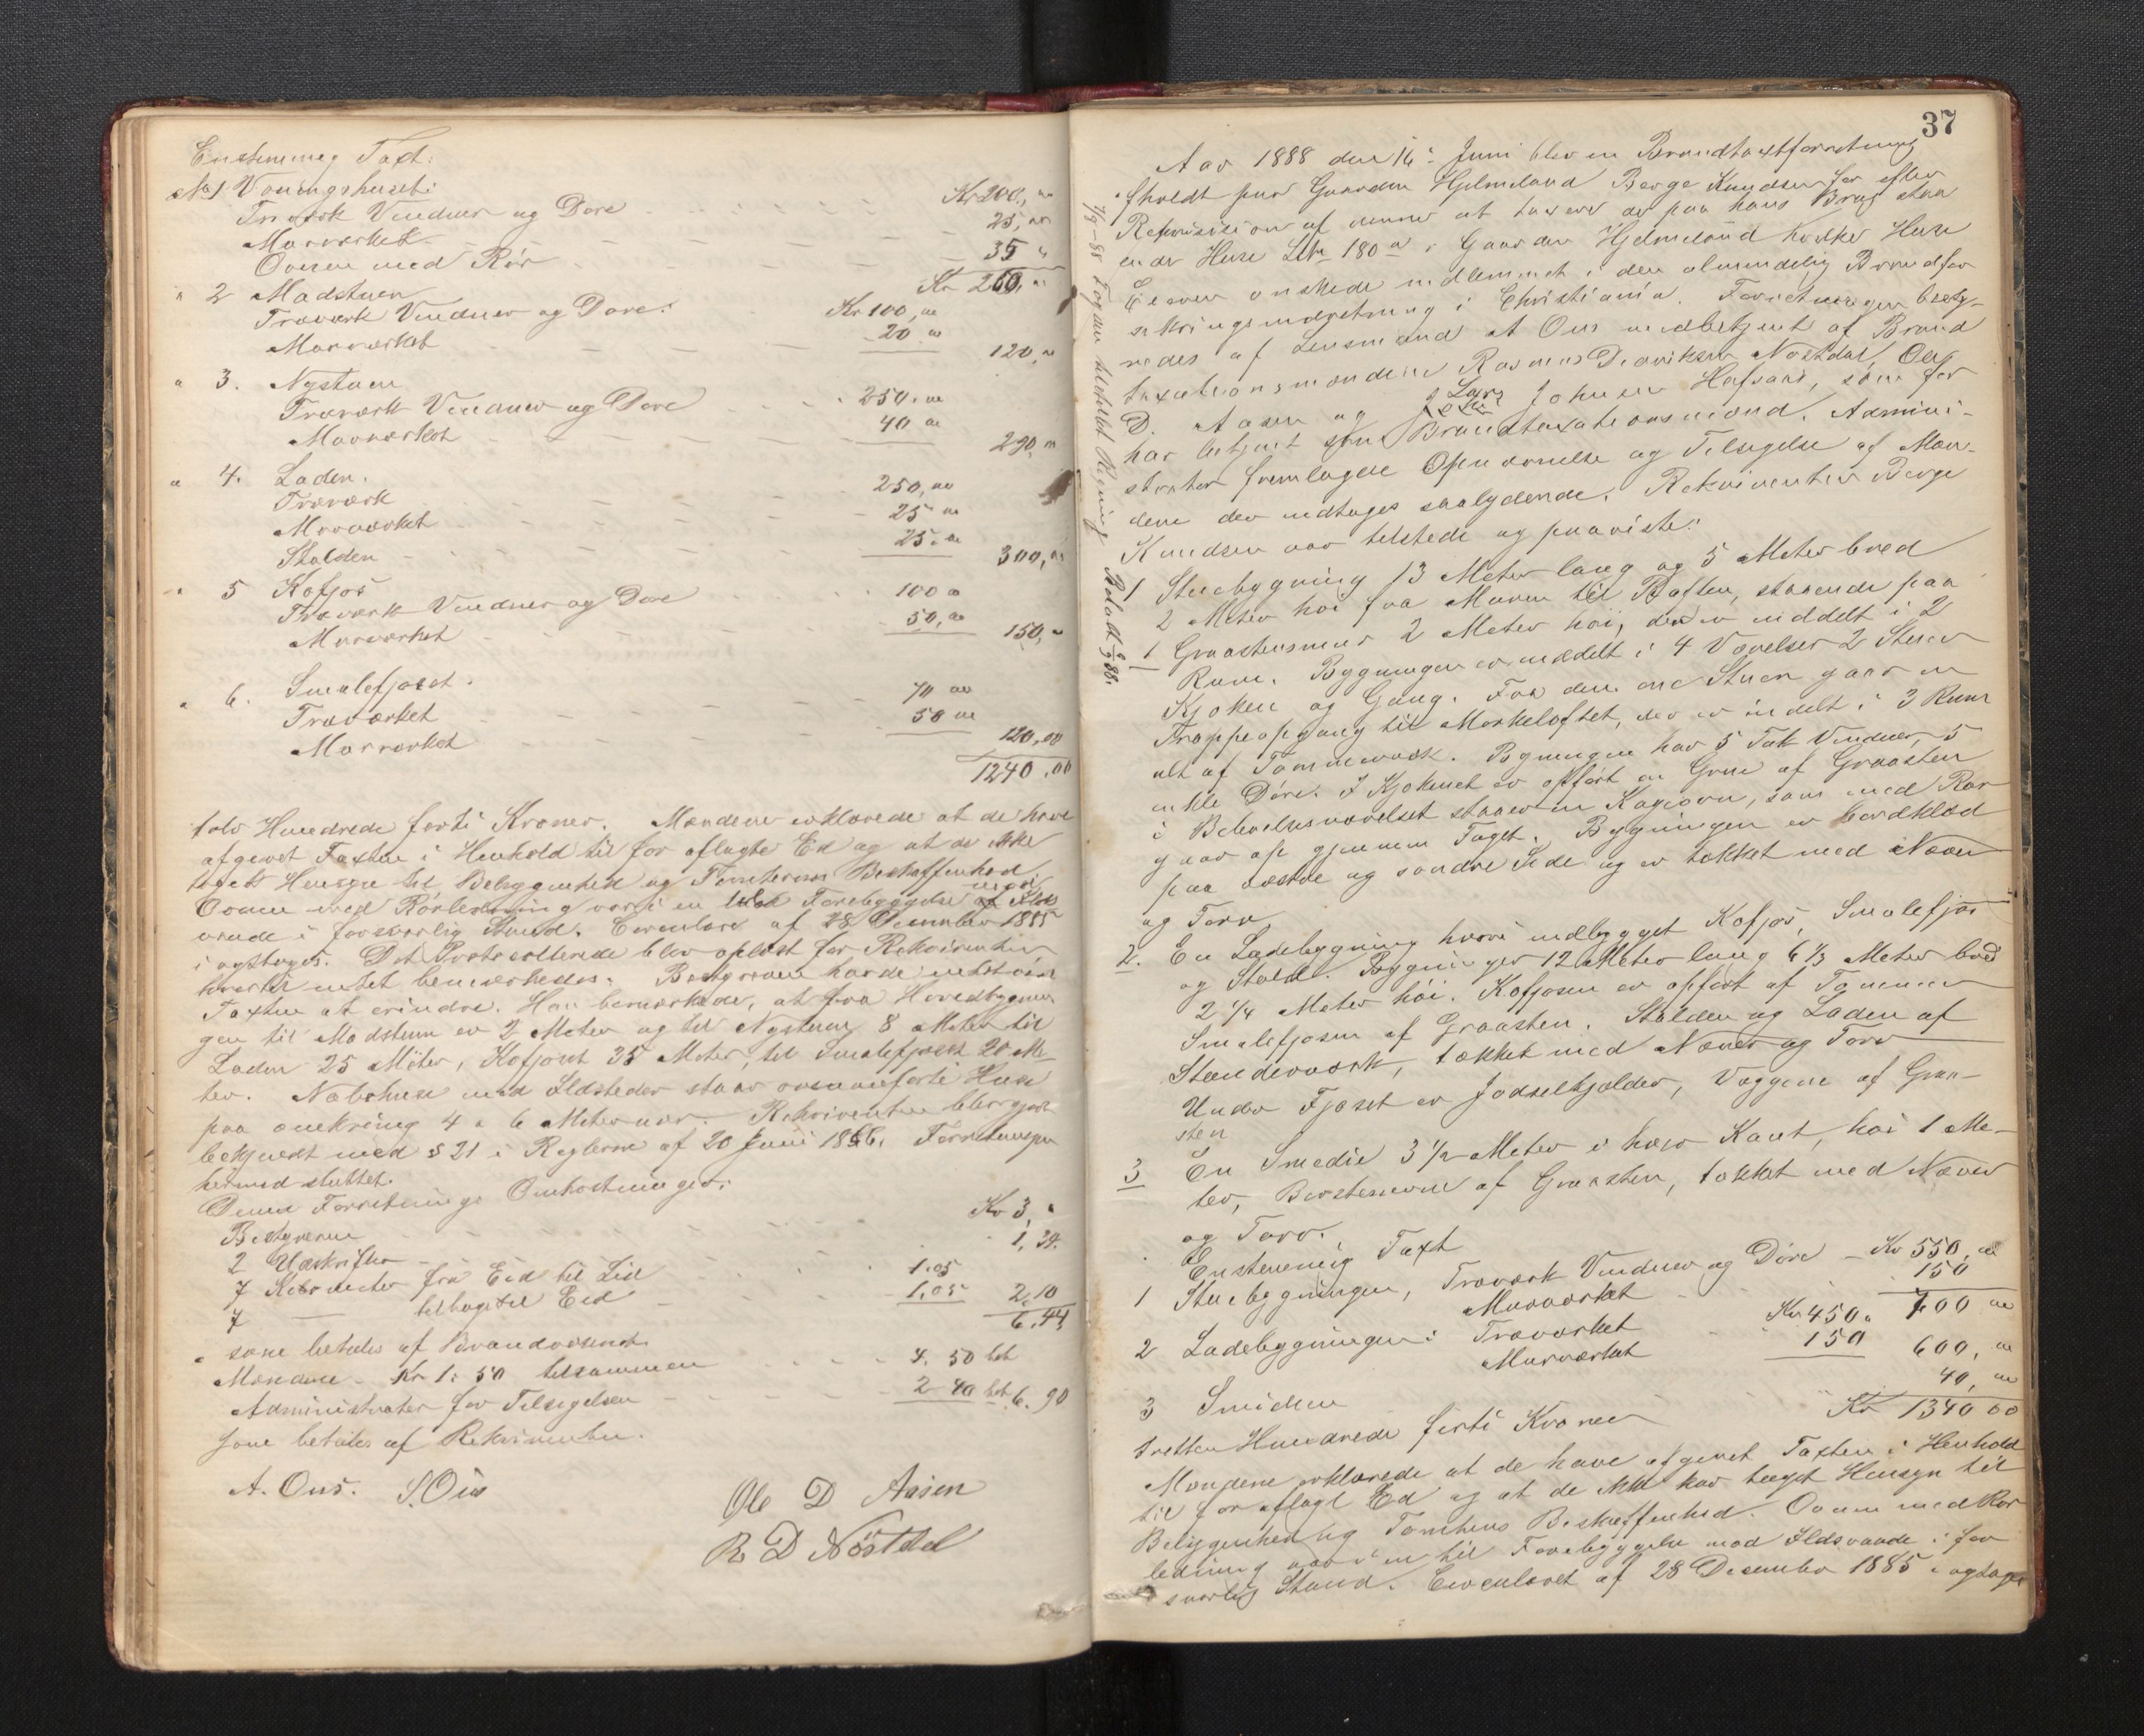 Enstemmig Taxt:
No 1 Vaaningshuset:
Træværk Vinduer og Døre Kr 200, "
Murværket 25, "
Ovnen med Rør 35 "
Kr 260, "
" 2 Madstuen
Træværk Vinduer og Døre: Kr 100, "
Murværket 20 "
120, "
" 3. Nystuen
Træværk Vinduer og Døre 250. "
Murværket 40 "
290, "
" 4. Laden.
Træværk 250, "
Murværket 25 "
Stalden 25. "
300, "
" 5 Kofjøs
Træværk Vinduer og Døre 100 "
Murværket 50, "
150, "
" 6. Smalefjøset.
Træværket 70 "
Murværket 50 "
120,00
1240.00
tolv Hundrede forti Kroner. Mændene erklærede at de have
afgivet Taxten i Henhold til før aflagte Ed og at de ikke
taget Hensyn til Beliggenhed og Tomternes Beskaffenhed
Ovnen med Rørledning var i en til Forebyggelse mod Ilds
vaade i forsvarlig Stand. Circulære af 28 December 1885
iagttoges. Det Protocollerede blev oplæst for Rekvirenten
hvortil intet bemærkedes. Bestyreren havde intet ved
Taxten at erindre. Han bemærkede, at fra Hovedbygnin
gen til Madstuen er 2 Meter og til Nystuen 8 Meter til
Laden 25 Meter, Kofjøset 35 Meter, til Smalefjøset 20 Me-
ter. Nabohuse med Ildsteder staar ovenanførte Huse
paa omkring 4 a 6 Meter nær. Rekvirenten blev gjort
bekjendt med § 21 i Reglerne af 20 Juni 1886. Forretningen
hermed sluttet.
Denne Forretnings Omkostninger:
Bestyreren Kr 3, "
2 Udskrifter 1,34.
7 Kilometer fra Eid til Lid 1.05
7 — tilbage til Eid 1,05 2,10
6.44
som betales af Brandvæsenet
Mændene Kr 1: 50 tilsammen 4. 50 bet
Administrator for Tilsigelsen 2 40 bet 6. 90
som betales af Rekvirenten.
A. Ous. S. Ous
Ole D Aasen
R D Nöstdal
37
Aar 1888 den 16de Juni blev en Brandtaxtforretning
afholdt paa Gaarden Hjelmeland Berge Knudsen for efter
Rekvisision af denne at taxere de paa hans Brug staa
ende Huse Lbr 180 a i Gaarden Hjelmeland hvilke Huse
Eieren ønskede indlemmet i den almindelig Brandfor
sikringsindretning i Christiania. Forretningen besty-
redes af Lensmand A Ous medbetjent af Brand
taxationsmændene Rasmus Dideriksen Nøstdal, Ole
D. Aasen og Lars Johnsen Hafsaas, som før
har betjent som Brandtaxationsmænd. Admini-
strator fremlagde Opnævnelse og Tilsigelse af Mæn-
dene der indtages saalydende. Rekvirenten Berge
Knudsen var tilstede og paaviste:
1 Stuebygning 13 Meter lang og 5 Meter bred
2 Meter høi fra Muren til Raften, staaende paa
1 Graastensmur 2 Meter høi, der er inddelt i 2
Rum. Bygningen er inddelt i 4 Værelser 2 Stuer
Kjøken og Gang. Fra den ene Stuen gaar en
Trappeopgang til Mørkeloftet, der er indelt i 3 Rum
alt af Tømmerværk. Bygningen har 5 Fak Vinduer, 5
enkle Døre. I Kjøkenet er opført en Grue af Graasten
i Beboelsesværelset staaer en Kogeovn, som med Rør
gaar op gjennem Taget. Bygningen er bordklæd
paa vestre og søndre Side og er tækket med Næver
og Torv
2. En Ladebygning hvori indbygget Kofjøs, Smalefjøs
og Stald. Bygningen 12 Meter lang 6 1/3 Meter bred
2 1/4 Meter høi. Kofjøsen er opført af Tømmer
Smalefjøsen af Graasten. Stalden og Laden af
Stenderværk, tækket med Næver og Torv
Under Fjøset er Jødselkjelder, Væggene af Graa-
sten
3 En Smedie 3 1/2 Meter i hver Kant, høi 1 Me-
ter, af Graasten, tækket med Næver
og Torv.
Enstemmig Taxt
1 Stuebygningen, Træværk Vinduer og Døre Kr 550, "
Murværket 150
700 "
2 Ladebygningen: Træværket Kr 450 "
Murværket 150 600, "
3 Smidien 40, "
Kr 1340 00
tretten Hundrede firti Kroner
Mændene erklærede at de have afgivet Taxten i Henhold
til før aflagt Ed og at de ikke har taget Hensyn til
Beliggenhed og Tomtens Beskaffenhed. Ovnen med Rør
ledning var i en til Forebyggelse mod Ildsvaade i for
svarlig Stand. Circulæret af 28 December 1885 iagttoges
7/8-88 Fogden tilstillet Regning Betalt 9/9 88.